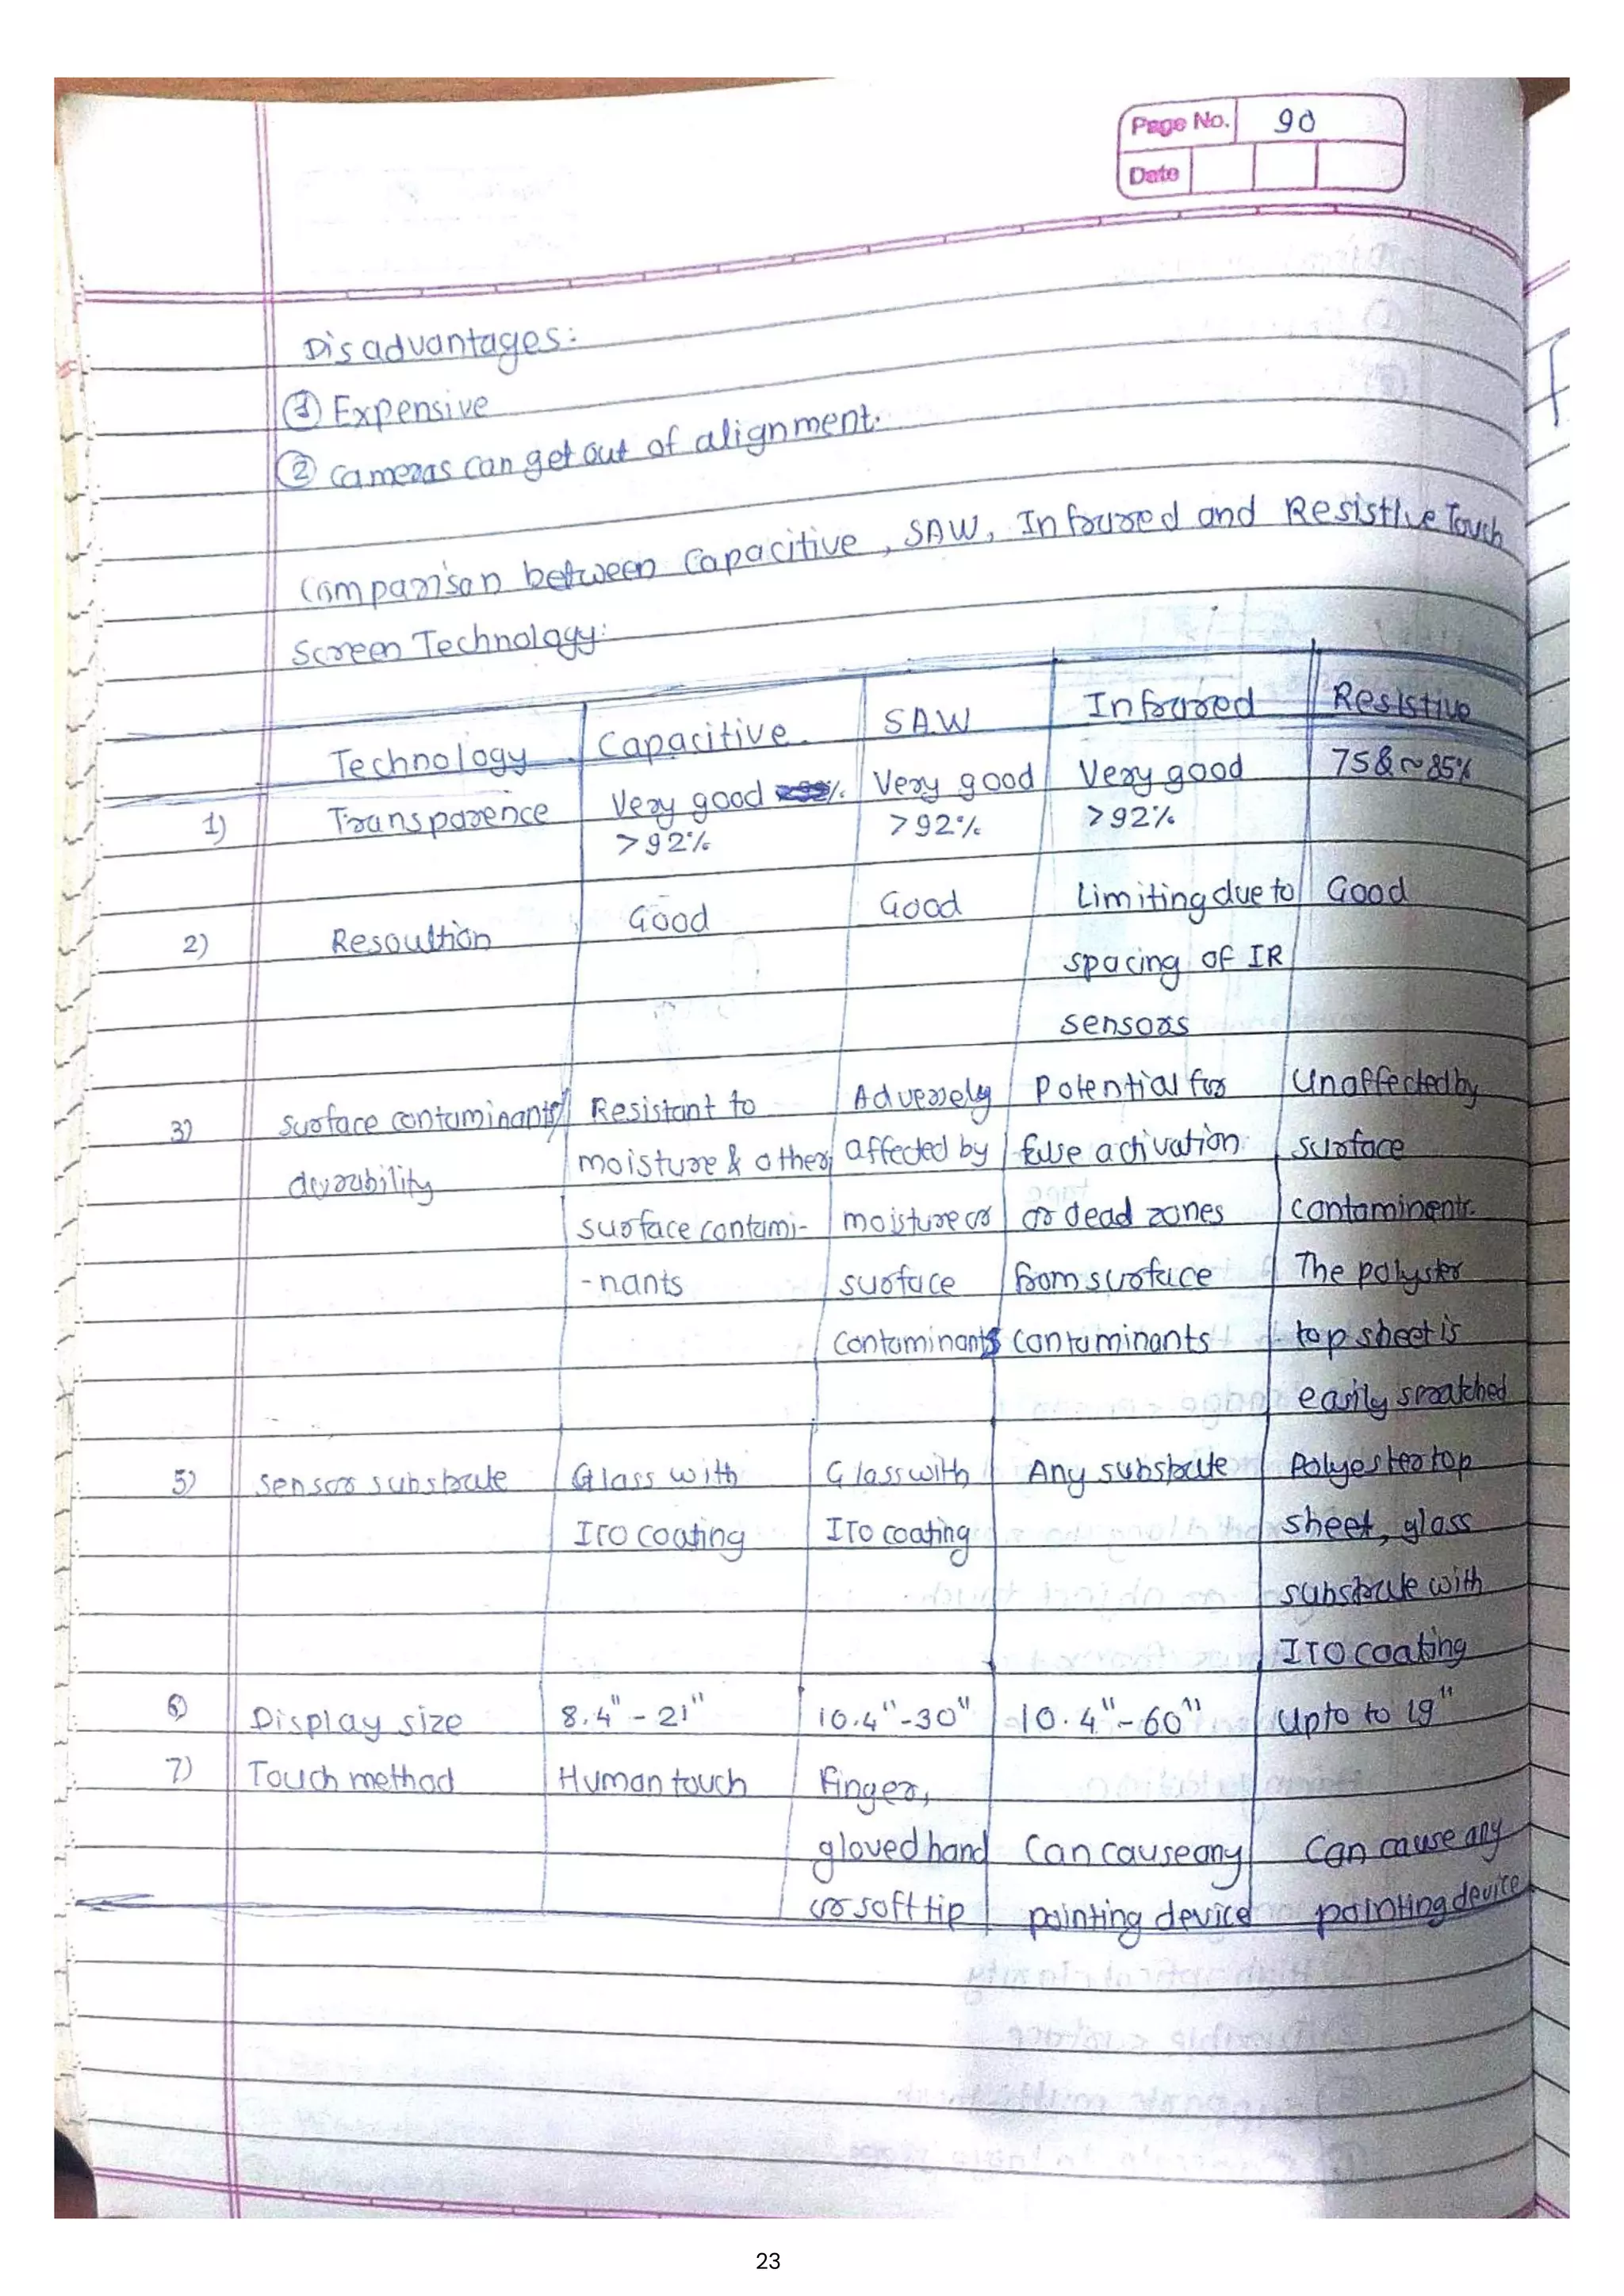 Page No. 90
Date
Disadvantages:
① Expensive
② Cameras can get out of alignment.
Comparison between Capacitive, SAW, Infrared and Resistive Touch
Screen Technology:
Technology Capacitive SAW Infrared Resistive
1) Transparence Very good Very good Very good 75&~85%
>92% >92% >92%
2) Resoultion Good Good Limiting due to Good
spacing of IR
sensors
3) Surface contaminants/ Resistant to Adversely Potential for Unaffected by
durability moisture & other affected by false activation surface
surface contami- moisture or or dead zones contaminents.
-nants surface from surface The polyster
contaminants contaminants top sheet is
easily scratched
5) Sensor substrate Glass with Glass with Any substrate Polyester top
ITO coating ITO coating sheet, glass
substrate with
ITO coating
6) Display size 8.4" - 21" 10.4"-30" 10.4"-60" Upto to 19"
7) Touch method Human touch Finger,
gloved hand Can cause any Can cause any
or soft tip pointing device pointing device
23